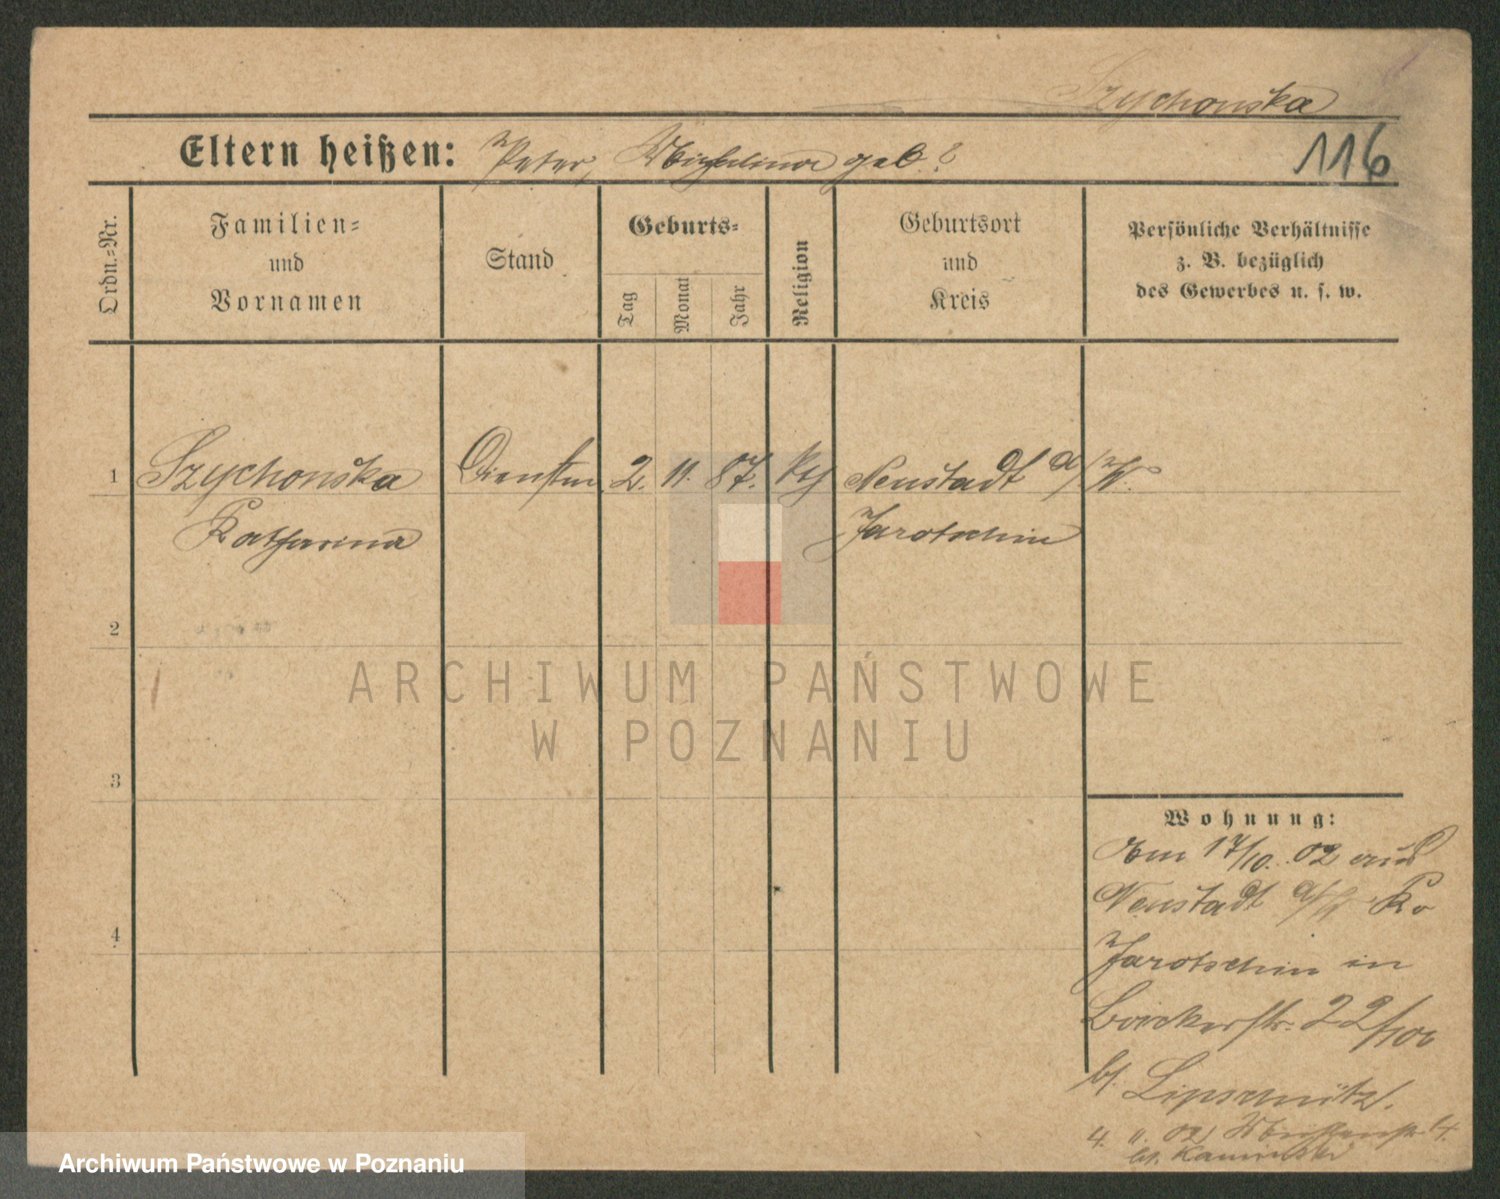 Szychonska
Eltern heißen: Peter, Michalina geb. ?
116
Ordn.-Nr.
Familien-
und
Vornamen
Stand
Geburts-
Tag
Monat
Jahr
Religion
Geburtsort
und
Kreis
Persönliche Verhältnisse
z. B. bezüglich
des Gewerbes u. s. w.
1 Szychonska Dienstm. 2. 11. 87. kth Neustadt a/W.
Katharina Jarotschin
2
3
4
Wohnung:
Am 17/10. 02 aus
Neustadt a/W Kr
Jarotschin in
22/100
bt. Lipschütz.
4. 11. 02 4.
bt.
ARCHIWUM PAŃSTWOWE
W POZNANIU
Archiwum Państwowe w Poznaniu